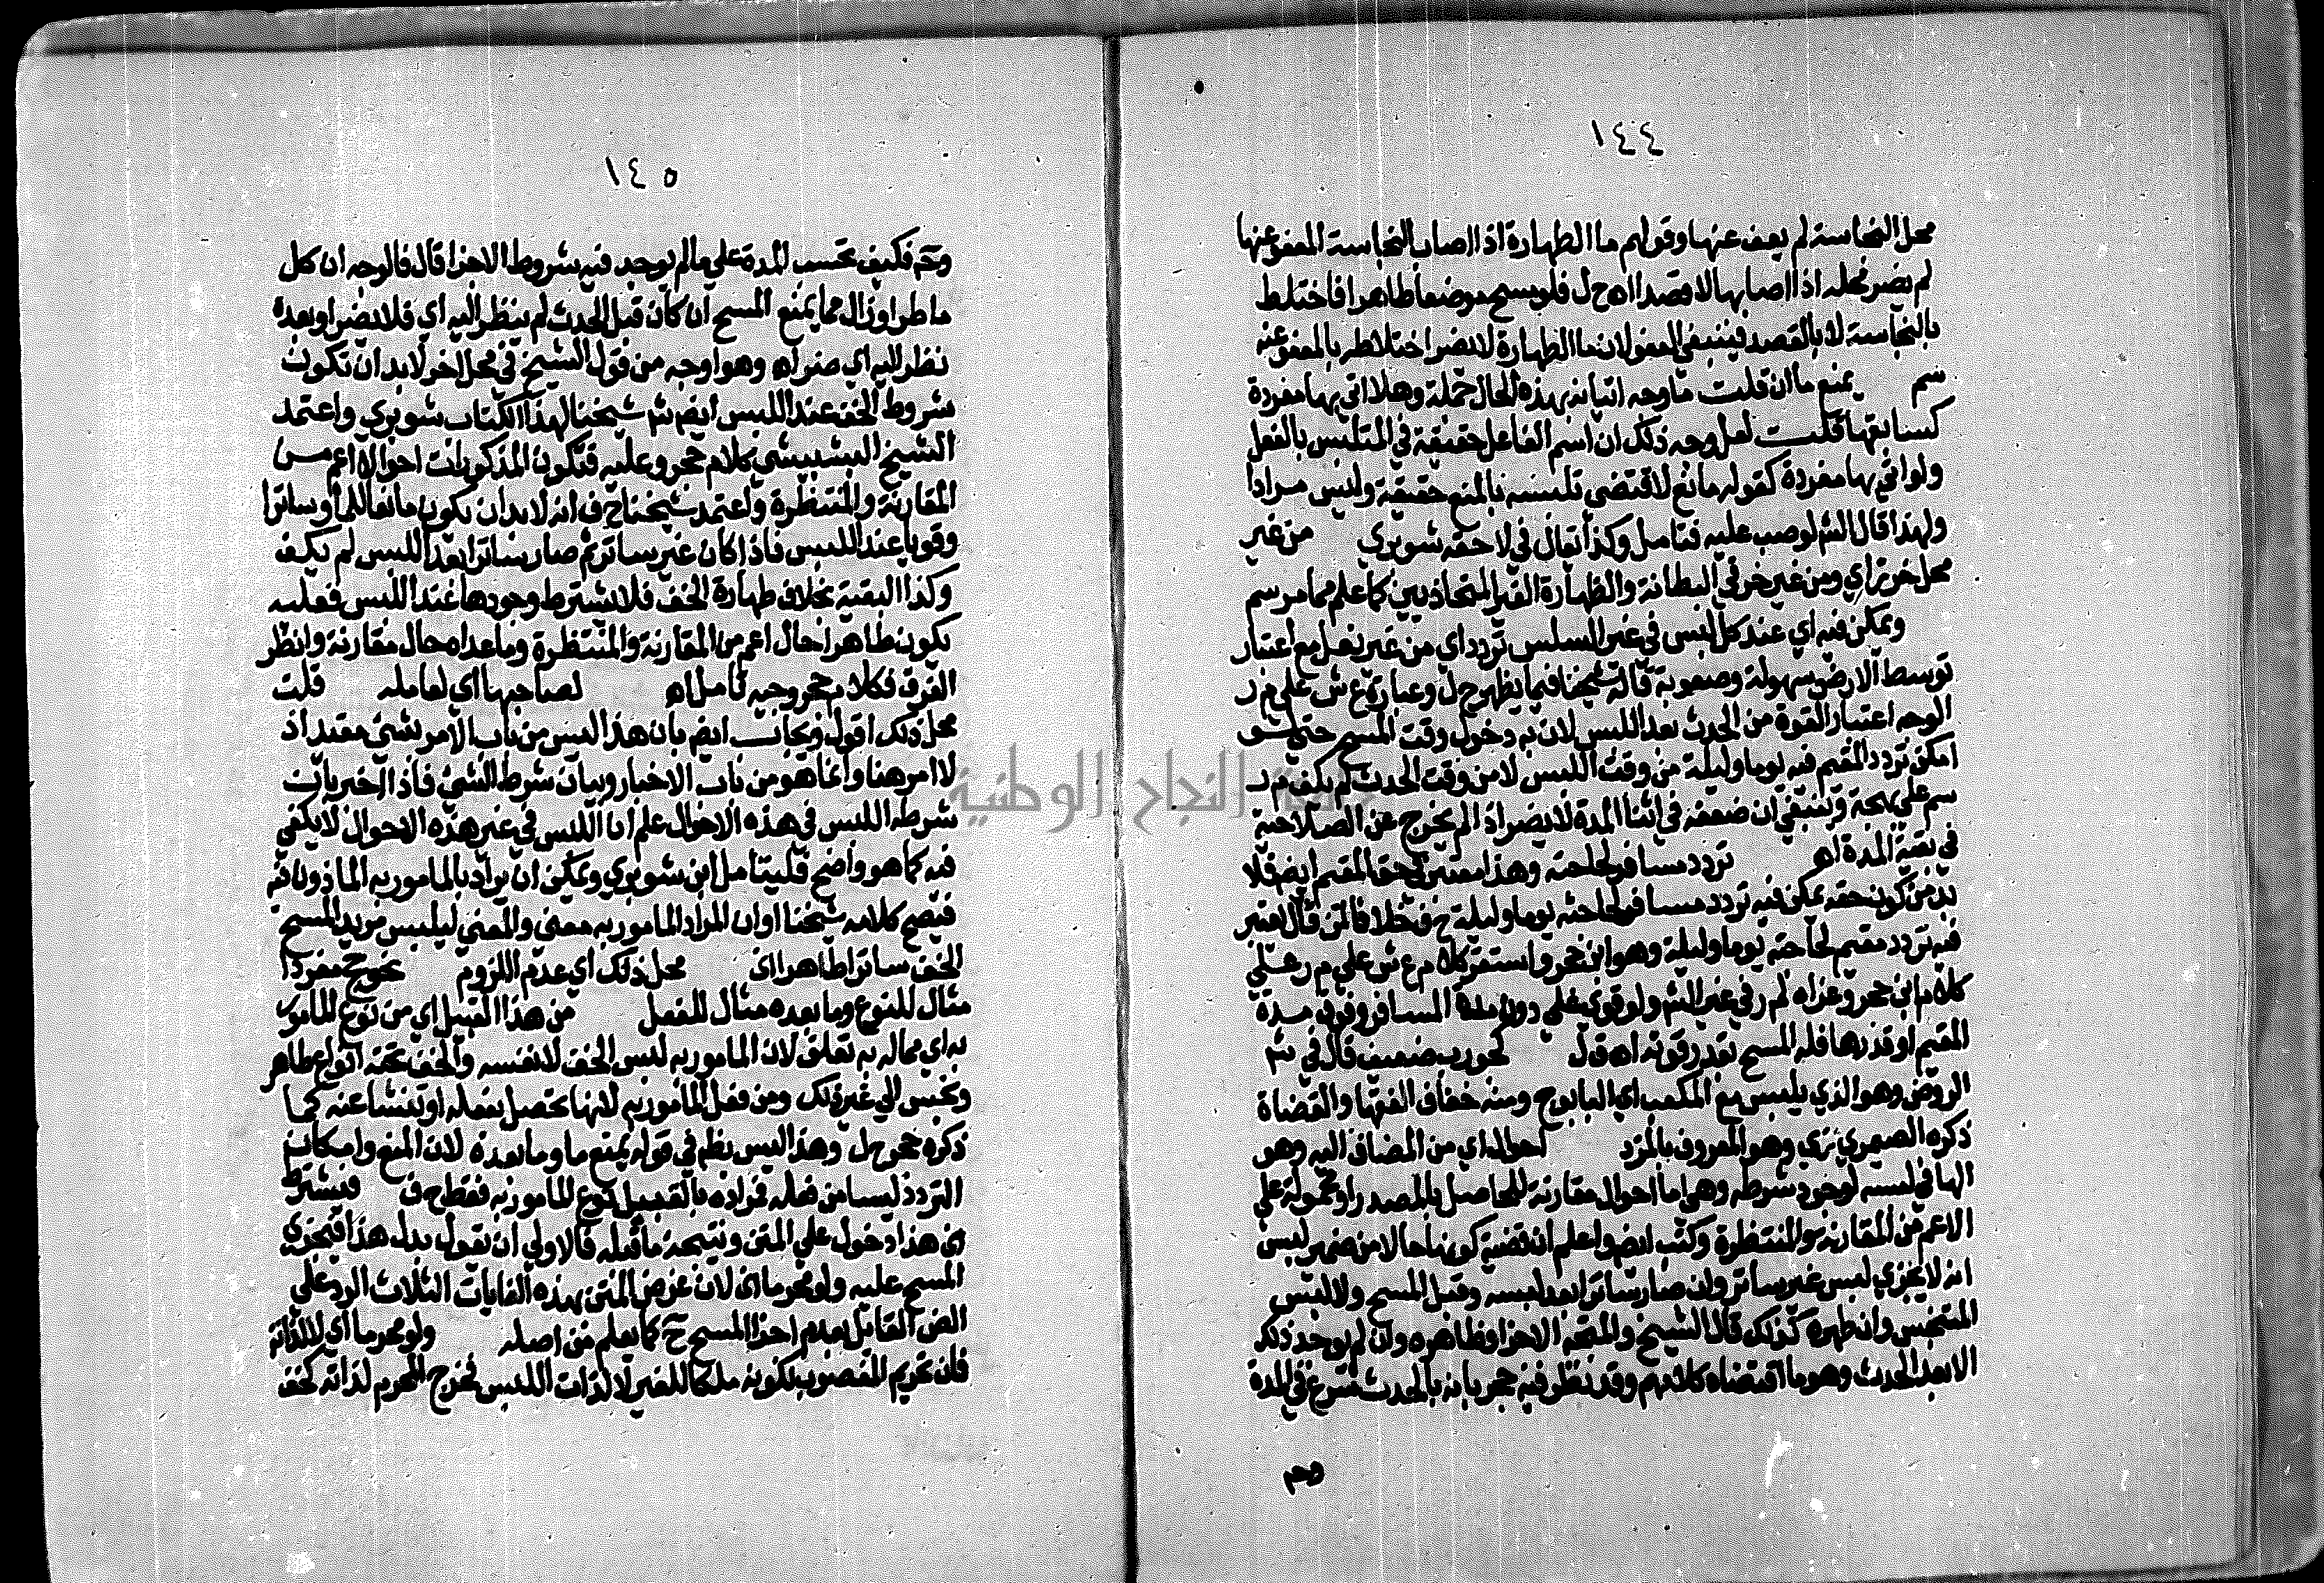 ١٤٤
محل النجاسة لم يعف عنها وقولهم ما الطهارة اذا اصاب النجاسة المعفو عنها
لم يضر محله اذا اصابها لا قصدا اه ح ل فلو مسح موضعا طاهرا فاختلط
بالنجاسة لا بالقصد فينبغي العفو لان ما الطهارة لا يضر اختلاطه بالمعفو عنه
سم يمنع ما ان قلت ما وجه اتيانه بهذه الحال جملة وهلا اتى بها مفردة
كسابقتها قلت لعل وجه ذلك ان اسم الفاعل حقيقة في المتلبس بالفعل
ولو اتي بها مفردة كقوله مانع لاقتضى تلبسه بالمنع حقيقة وليس مرادا
ولهذا قال الشم لو صب عليه فتامل وكذا يقال في لاحقه شوبري من غير
محل خرز اي ومن غير خرقي البطانة والظهارة الغير المتحاذيين كما علم مما مر سم
ويمكن فيه اي عند كل لبس في غير السلس تردد اي من غير نعل مع اعتبار
توسط الارض سهولة وصعوبة قاله شيخنا فيما يظهر ح ل وعبارة ع ش علي م ر
الوجه اعتبار القوة من الحدث بعد اللبس لان به دخول وقت المسح حتى لو
امكن تردد المقيم فيه يوما وليلة من وقت اللبس لا من وقت الحدث لم يكف م ر
سم على بهجة وينبغي ان ضعفه في اثنا المدة لا يضر اذا لم يخرج عن الصلاحية
في بقية المدة اه تردد مسافر لحاجته وهذا معتبر في حق المقيم ايضا فلا
بد من كون خفه يمكن فيه تردد مسافر لحاجته يوما وليلة ح ف خلافا لمن قال المعتبر
فيه تردد مقيم لحاجته يوما وليلة وهو ابن حجر واستقر كلام ع ش علي م ر علي
كلام ابن حجر وعزاه لم ر في غير الشم ولو قوي على دون مدة المسافر وفوق مدة
المقيم او قدرها فله المسح بقدر قوته اه ق ل كجورب ضعيف قال في شم
الروض وهو الذي يلبس مع المكعب اي البابوج ومنه خفاف الفقها والقضاة
ذكره الصيمري بزي وهو المعروف بالمزد احوال اي من المضاف اليه وهو
الها في لبسه لوجود شرطه وهي اما احوال مقارنة للحاصل بالمصدر او محمولة علي
الاعم من المقارنة والمنتظرة وكتب ايضا واعلم ان قضية كونها حالا من ضمير لبس
انه لا يجزي لبس غير ساتر وان صار ساترا بعد لبسه وقبل المسح ولا لبس
المتنجس وان طهره كذلك قال الشيخ والمتجه الاجزا وظاهره وان لم يوجد ذلك
الا بعد الحدث وهو ما اقتضاه كلامهم وقد نظر فيه حجر بانه بالحدث شرع في المدة
وح
١٤٥
وح فكيف تحسب المدة على ما لم يوجد فيه شروط الاجزا قال فالوجه ان كل
ما طرا وزال مما يمنع المسح ان كان قبل الحدث لم ينظر اليه اي فلا يضر او بعده
نظر اليه اي ضر اه وهو اوجه من قول الشيخ في محل اخر لا بد ان تكون
شروط الخف عند اللبس ايضا ثم شيخنا لهذا الكتاب شوبري واعتمد
الشيخ البشبيشي كلام حجر وعليه فتكون المذكورات احوالا اعم من
المقارنة والمنتظرة واعتمد شيخنا ح ف انه لا بد ان يكون مانعا للما وساترا
وقويا عند اللبس فاذا كان غير ساتر ثم صار ساترا بعد اللبس لم يكف
وكذا البقية بخلاف طهارة الخف فلا يشترط وجودها عند اللبس فعليه
يكون طاهرا حال اعم من المقارنة والمنتظرة وما عداه حال مقارنة وانظر
الفرق فكلام حجر وجيه تامل اه لصاحبها اي لعامله قلت
محل ذلك اقول ويجاب ايضا بان هذا ليس من باب الامر بشيء مقيد اذ
لا امر هنا وانما هو من باب الاخبار وبيان شرط الشيء فاذا اخبر بان
شرطه اللبس في هذه الاحوال علم ان اللبس في غير هذه الاحوال لا يكفي
فيه كما هو واضح فليتامل ابن شوبري ويمكن ان يراد بالمامور به الماذون فيه
فيصح كلام شيخنا او ان المراد المامور به معنى والمعنى ليلبس مريد المسح
الخف ساترا طاهرا الخ محل ذلك اي عدم اللزوم نحو حج مفردا
مثال للنوع وما بعده مثال للفعل من هذا القبيل اي من نوع المامور
به اي مما له به تعلق لان المامور به لبس الخف لا نفسه والخف تحته انواع طاهر
ونجس الي غير ذلك ومن فعل المامور به لانها تحصل بفعله او تنشا عنه كما
ذكره حجر ح ل وهذا ليس نظر في قوله يمنع ما وما بعده لان المنع وامكان
التردد ليسا من فعله فمراده بالقبيل نوع المامور به فقط ح ف فيشترط
في هذا دخول علي المتن ونتيجة ما قبله فالاولي ان يقول بدل هذا فيجزي
المسح عليه ولو محرما الخ لان غرض المتن بهذه الغايات الثلاث الرد على
الض القايل بعدم اجزا المسح ح كما يعلم من اصله ولو محرما اي لا لذاته
فان تحريم المغصوب لكونه ملكا للغير لا لذات اللبس فخرج المحرم لذاته كخف
جامعة النجاح الوطنية